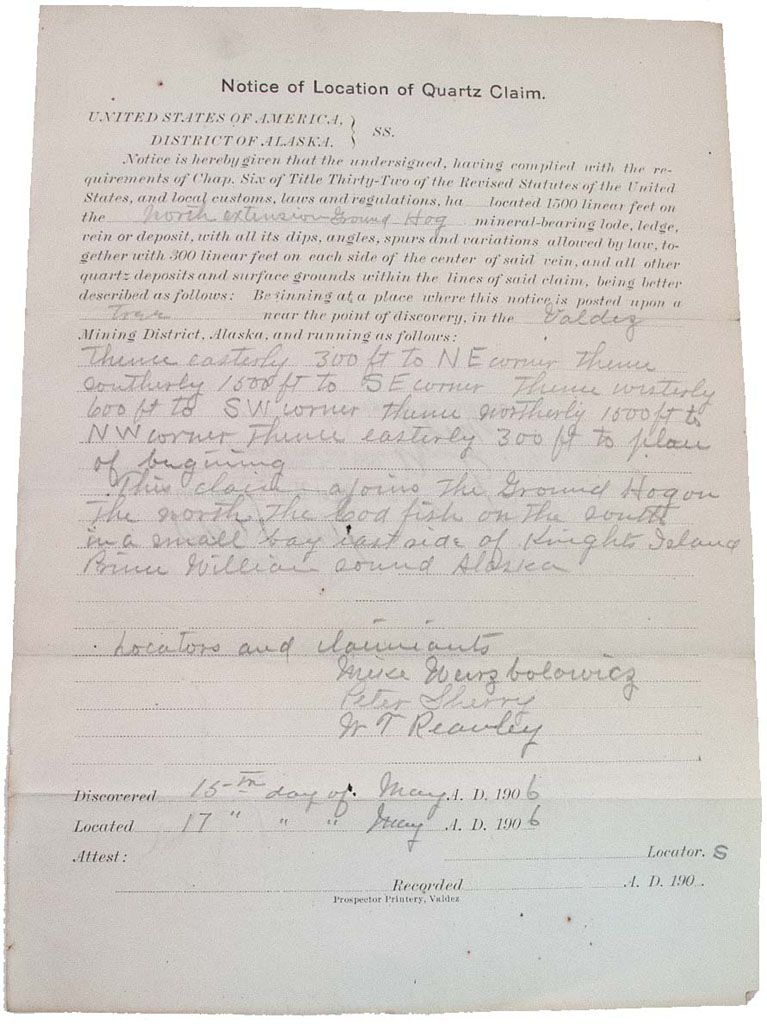 Notice of Location of Quartz Claim.
UNITED STATES OF AMERICA, } SS.
DISTRICT OF ALASKA.
Notice is hereby given that the undersigned, having complied with the re-
quirements of Chap. Six of Title Thirty-Two of the Revised Statutes of the United
States, and local customs, laws and regulations, ha located 1500 linear feet on
the North extension Ground Hog mineral-bearing lode, ledge,
vein or deposit, with all its dips, angles, spurs and variations allowed by law, to-
gether with 300 linear feet on each side of the center of said vein, and all other
quartz deposits and surface grounds within the lines of said claim, being better
described as follows: Beginning at a place where this notice is posted upon a
tree near the point of discovery, in the Valdez
Mining District, Alaska, and running as follows:
Thence easterly 300 ft to NE corner thence
southerly 1500 ft to SE corner thence westerly
600 ft to SW corner thence northerly 1500 ft to
NW corner thence easterly 300 ft to place
of begining
This claim ajoins the Ground Hog on
the north the Cod fish on the south
in a small bay east side of Knights Island
Prince William sound Alaska
Locators and claimants
Mike
Peter Sherry
W T
Discovered 15th day of May A. D. 1906
Located 17 " " " May A. D. 1906
Attest:
Locator. S
Recorded A. D. 190 .
Prospector Printery, Valdez